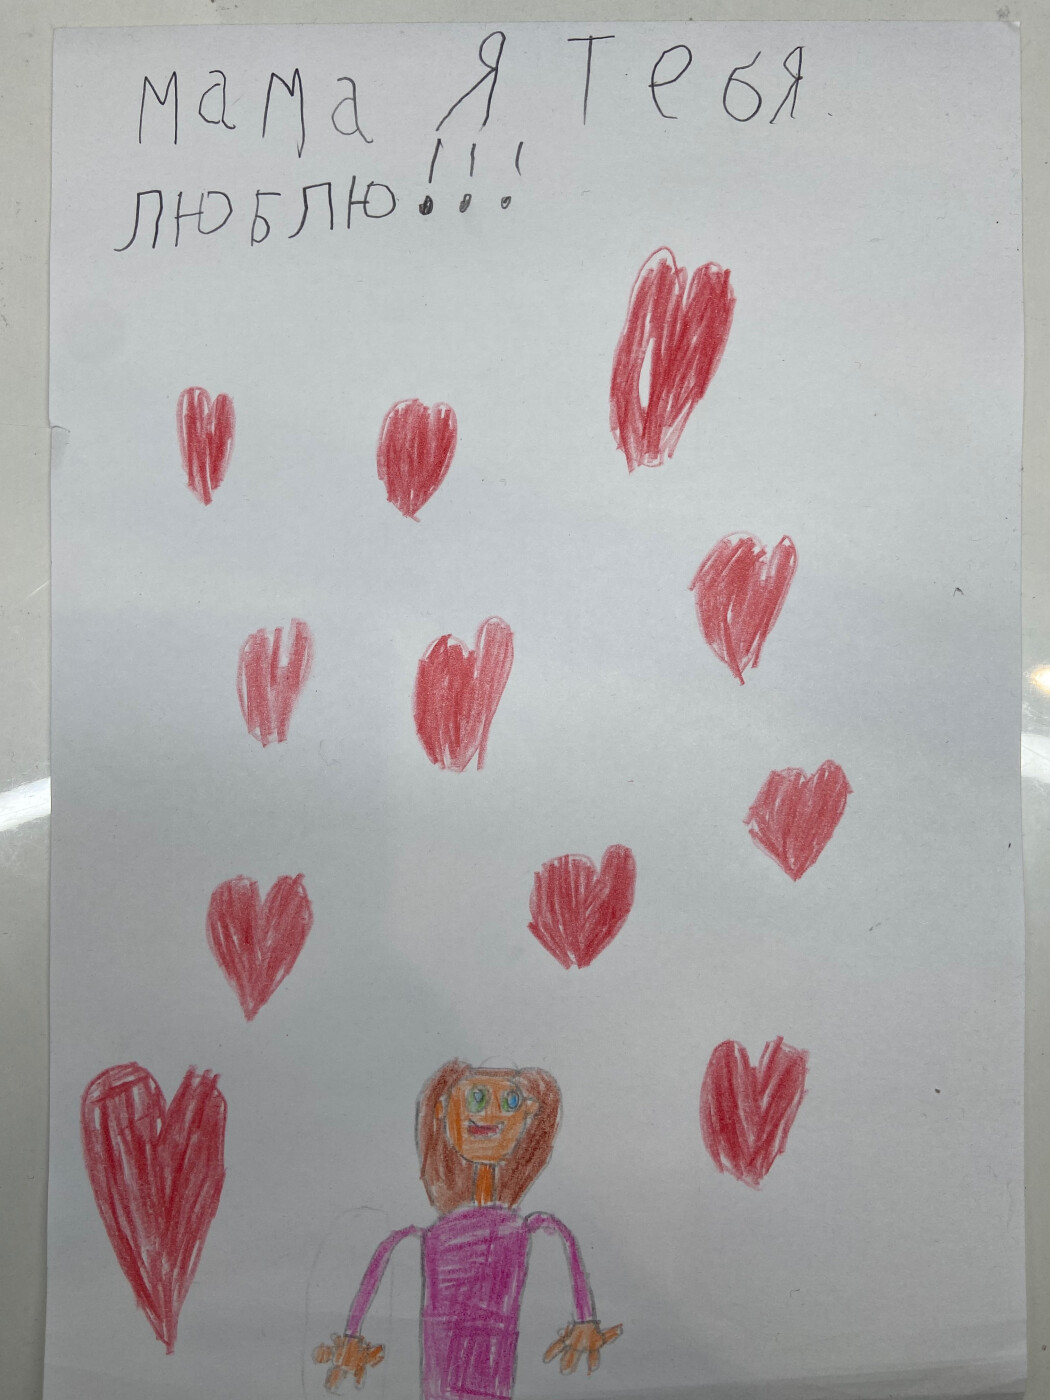 мама Я Тебя
люблю!!!